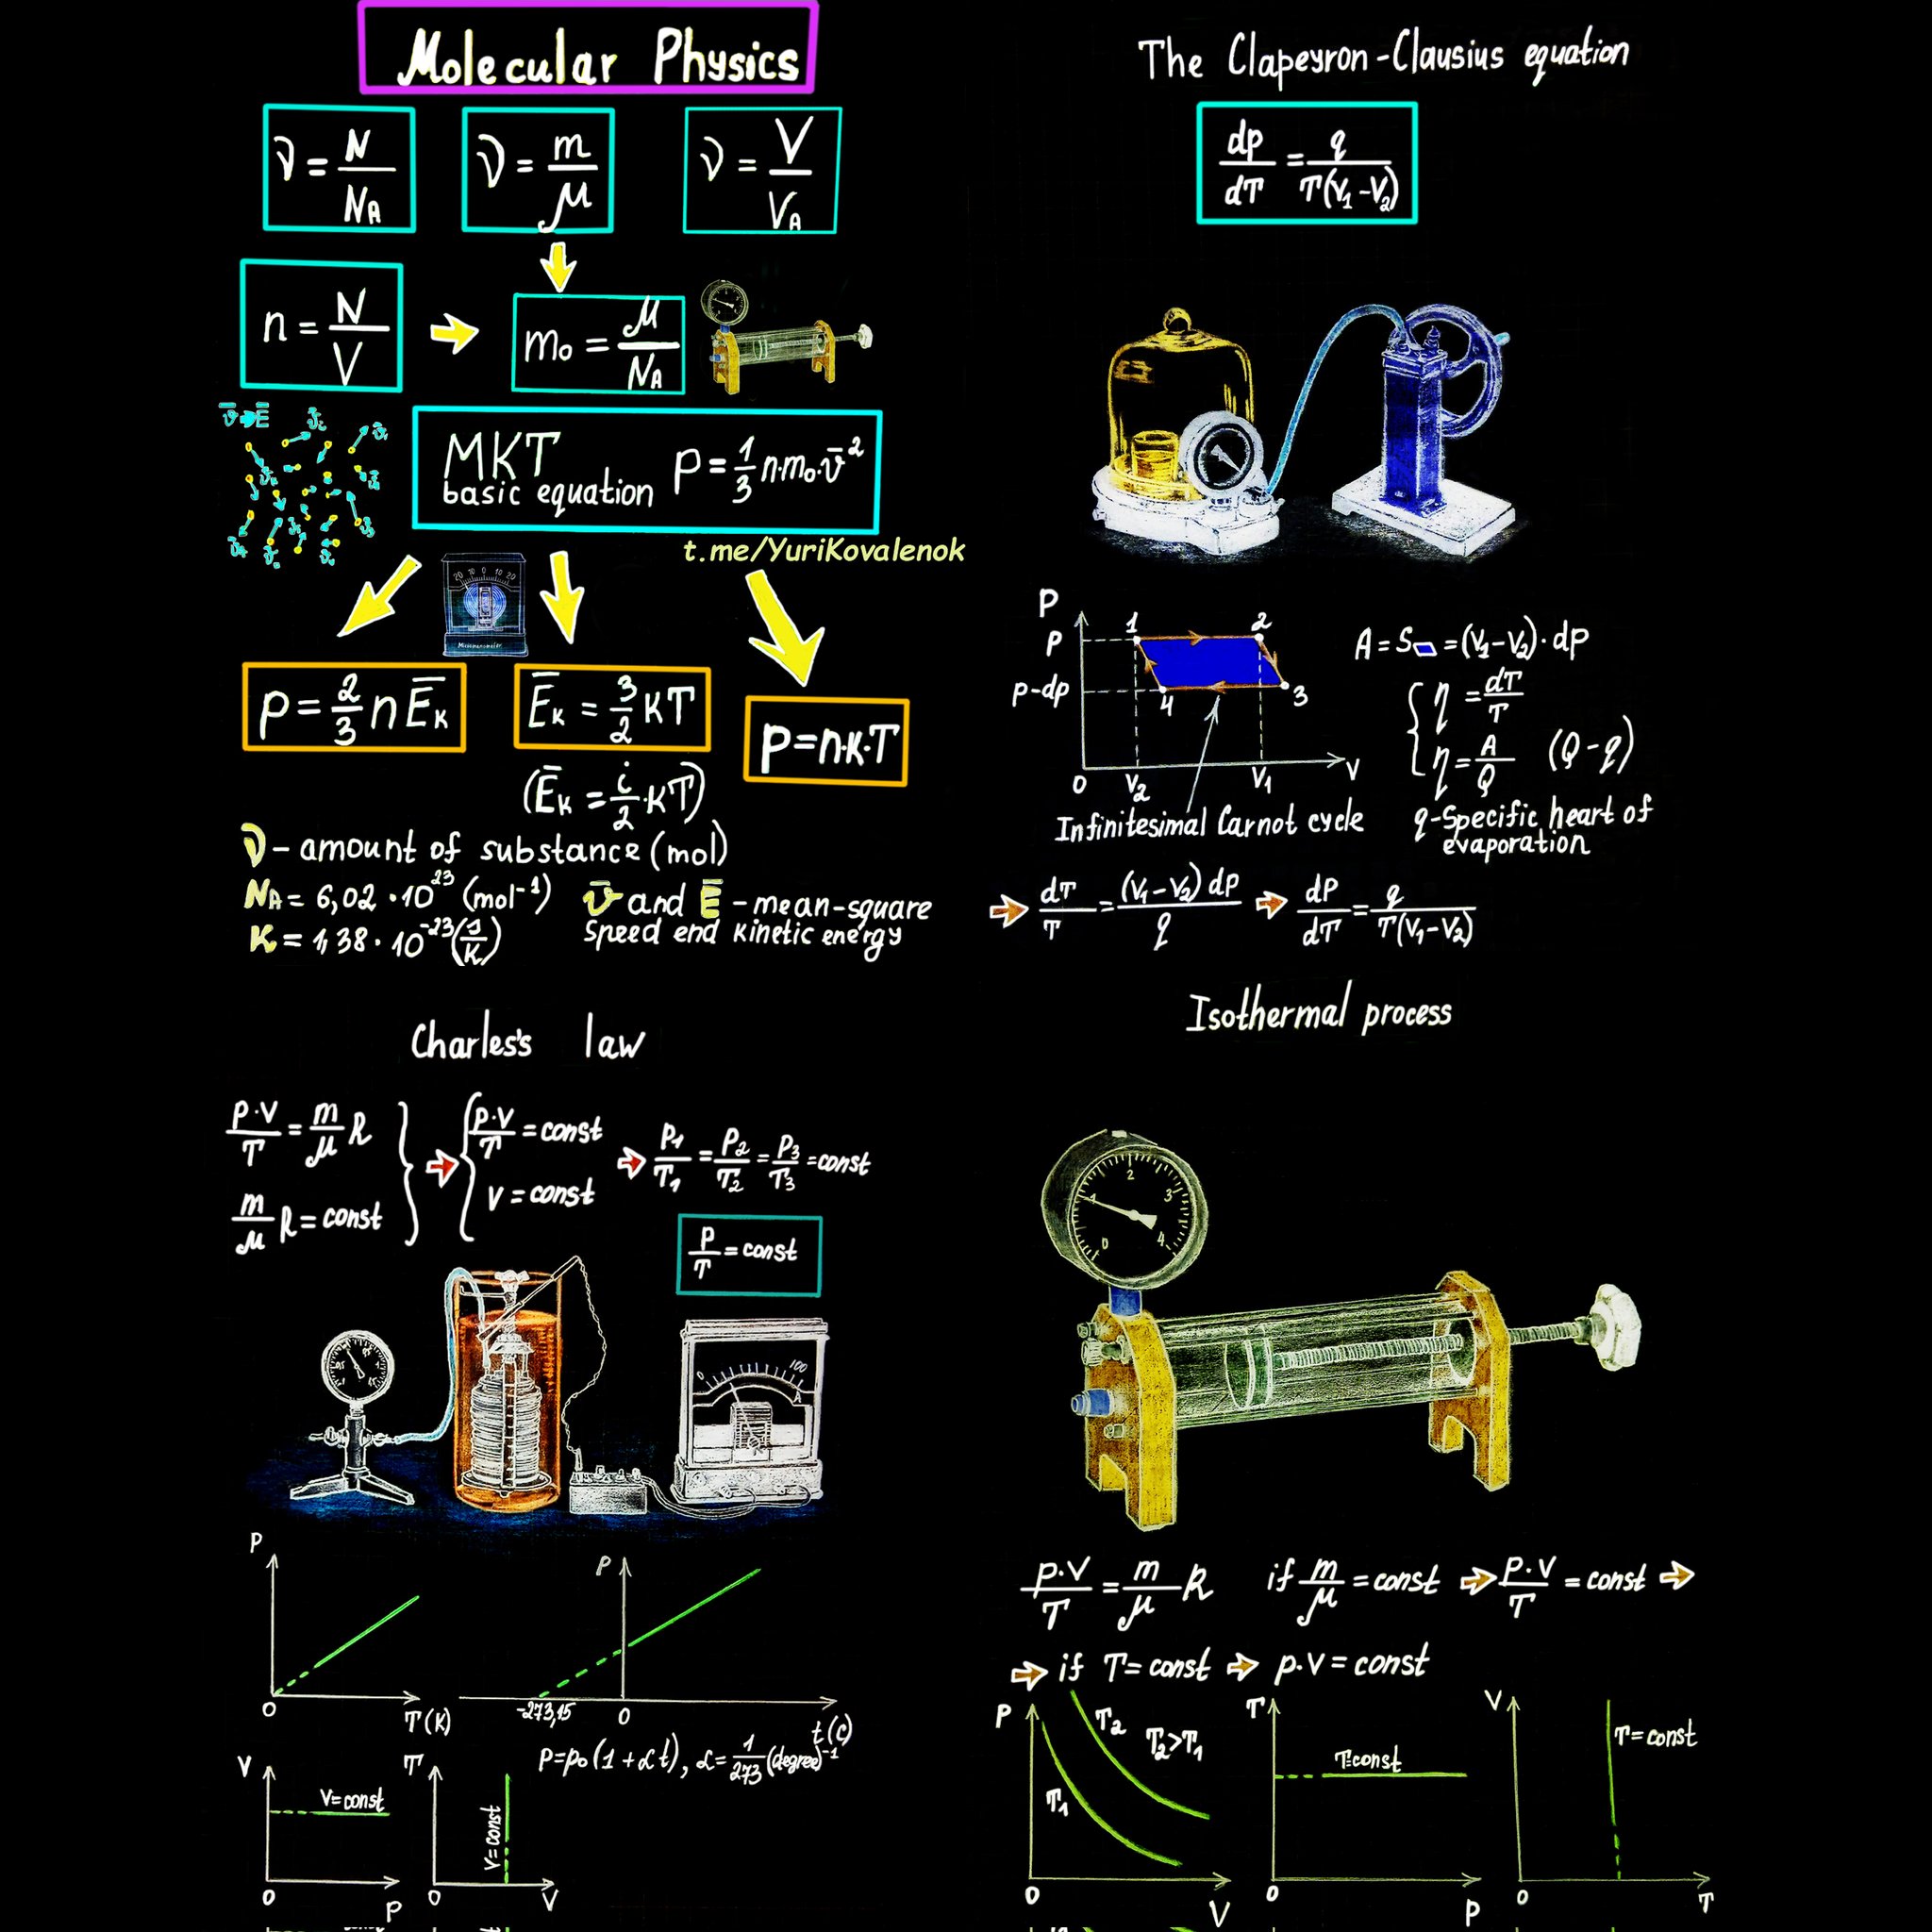 Molecular Physics
ν = N/N_A
ν = m/μ
ν = V/V_A
n = N/V
m₀ = μ/N_A
MKT
basic equation p = 1/3 n·m₀·v̄²
t.me/YuriKovalenok
20 10 0 10 20
p = 2/3 n Ē_K
Ē_K = 3/2 KT
p = n·K·T
(Ē_K = i/2·KT)
ν - amount of substance (mol)
N_A = 6,02 · 10²³ (mol⁻¹)
K = 1,38 · 10⁻²³ (J/K)
v̄ and Ē - mean-square
speed end kinetic energy
The Clapeyron-Clausius equation
dp/dT = q/T(V₁-V₂)
P
p
p-dp
1 2 3 4
0 V₂ V₁ V
Infinitesimal Carnot cycle
A = S▱ = (V₁-V₂)·dp
η = dT/T
η = A/Q (Q-q)
q-Specific heart of
evaporation
dT/T = (V₁-V₂)dp/q
dP/dT = q/T(V₁-V₂)
Charles's law
p·V/T = m/μ R
m/μ R = const
p·V/T = const
V = const
P₁/T₁ = P₂/T₂ = P₃/T₃ = const
P/T = const
0 100
A
P
0 T(K)
P
-273,15 0 t(c)
P=p₀(1+αt), α=1/273 (degree)⁻¹
V
V=const
0 P
T
V=const
0 V
Isothermal process
0 1 2 3 4
p·V/T = m/μ R if m/μ = const P·V/T = const
if T = const p·V = const
P
T₂ T₂>T₁
T₁
0 V
T
T=const
0 P
V
T=const
0 T